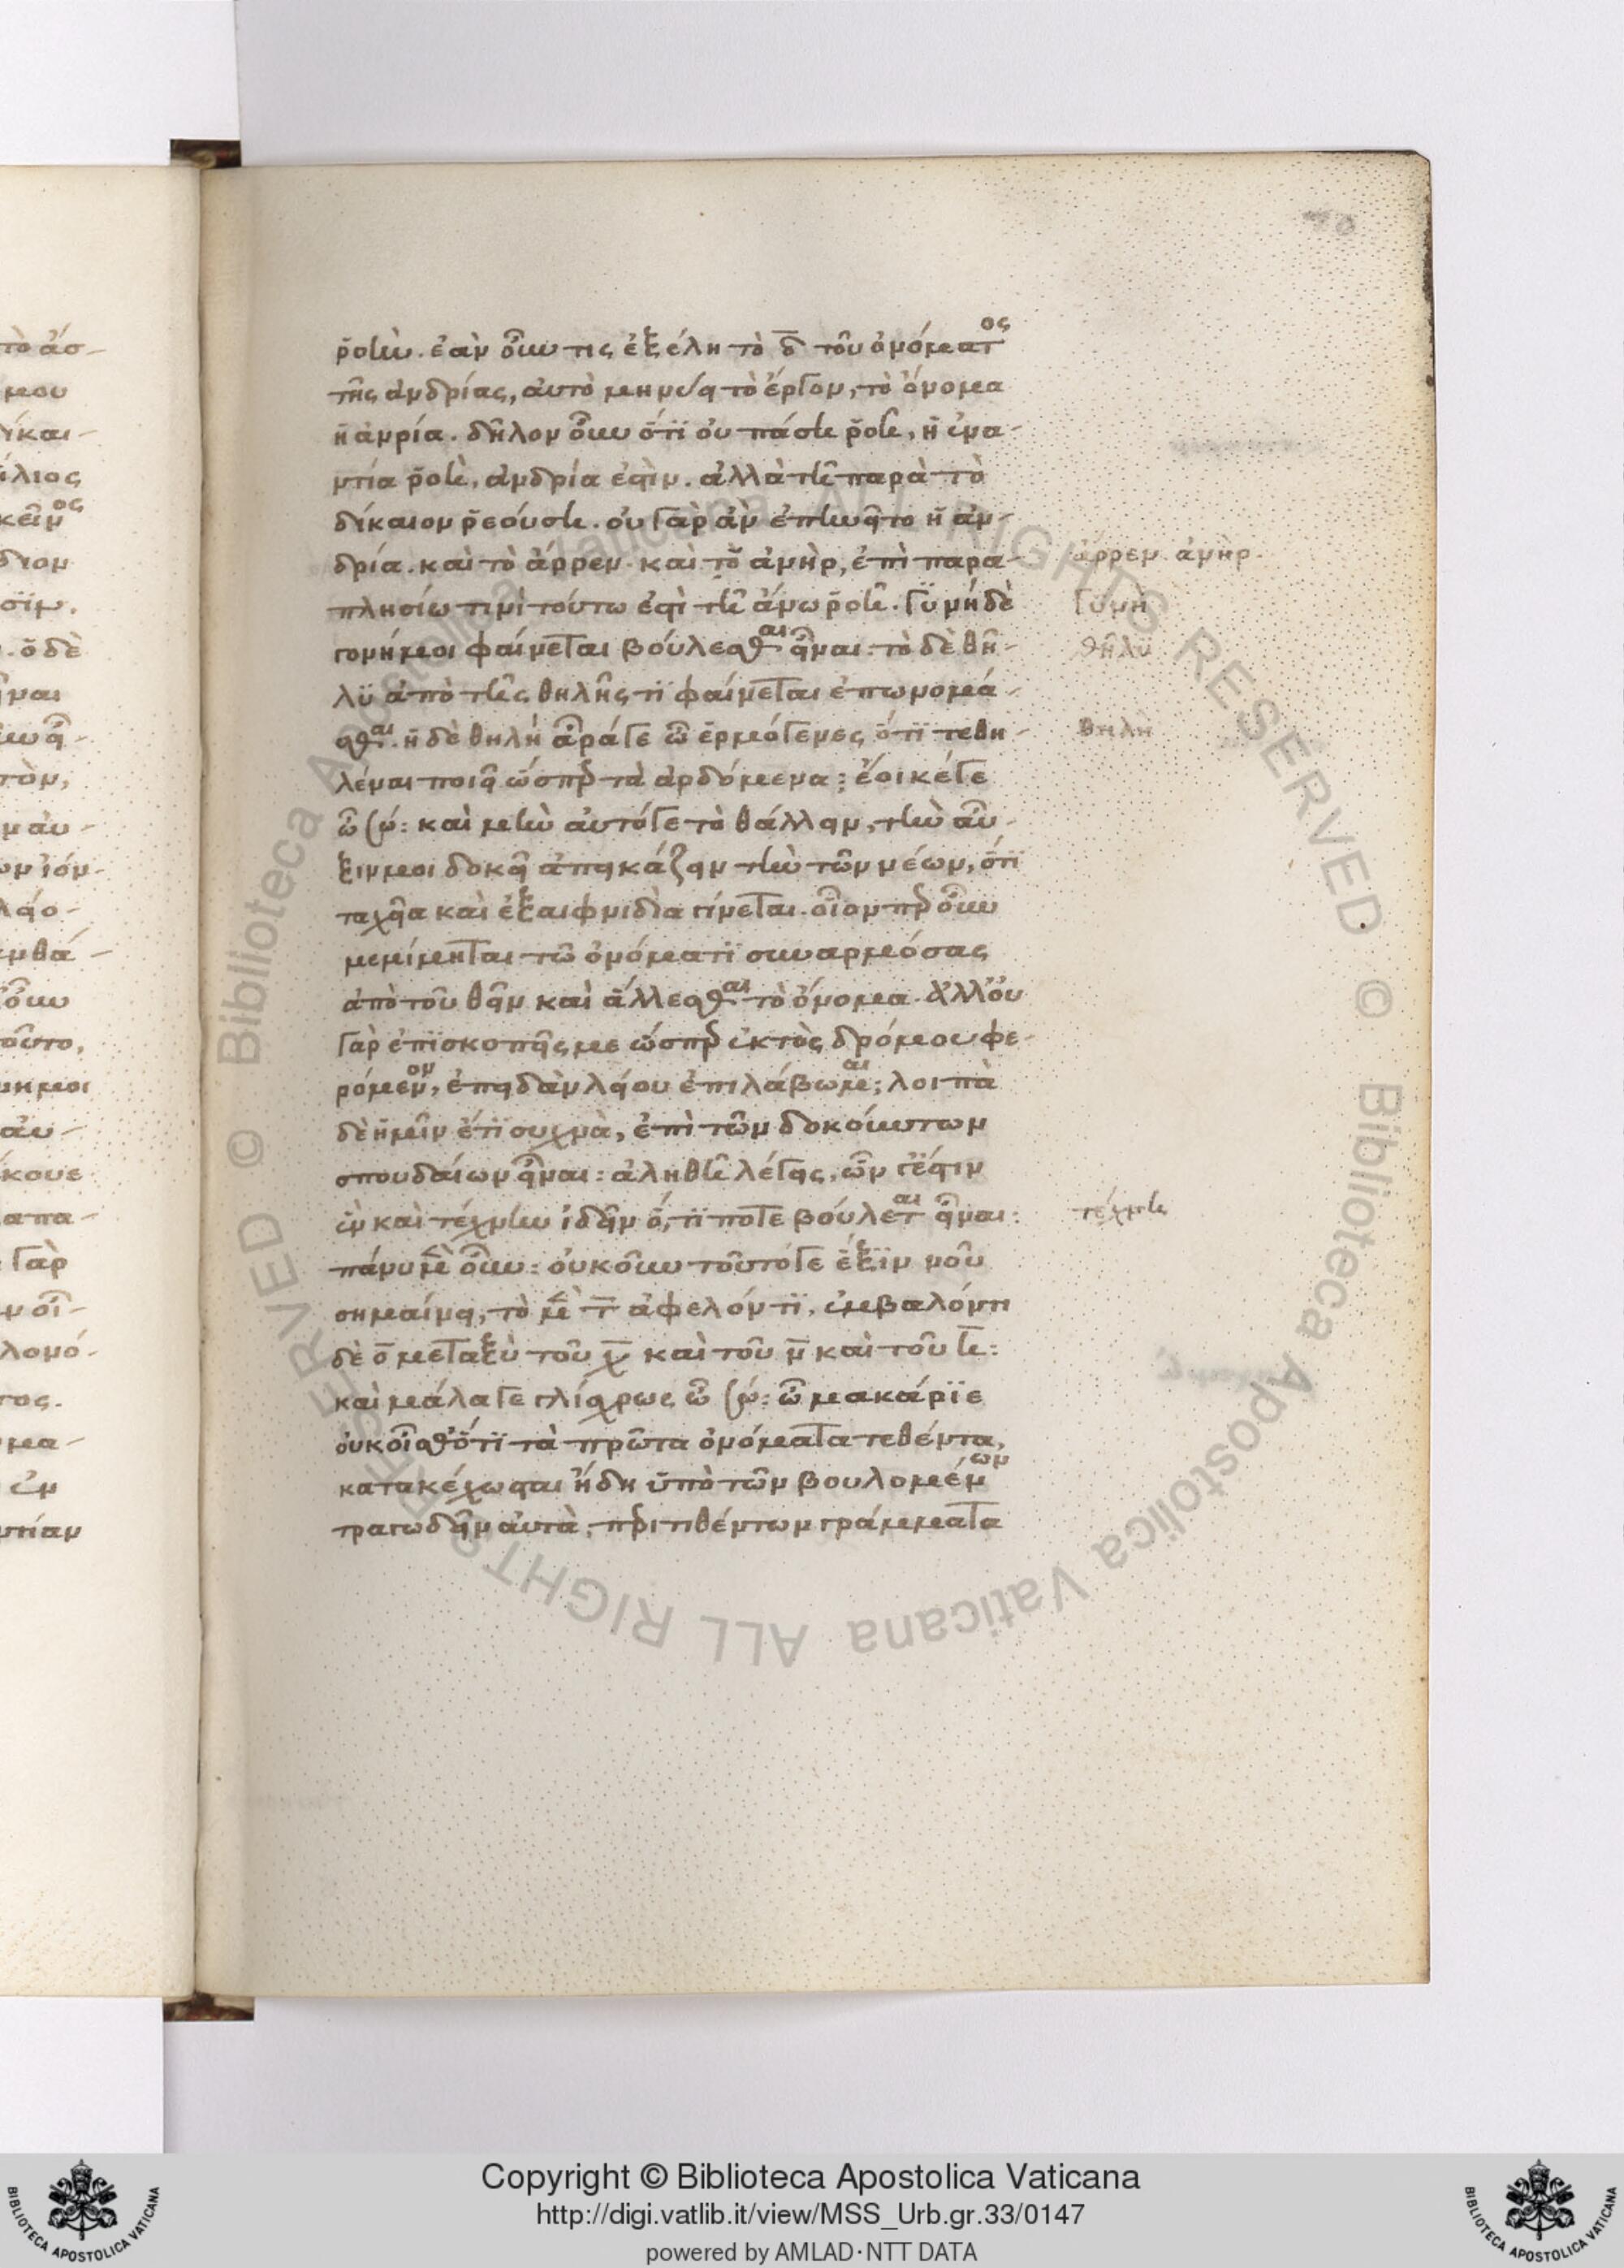 ῥοήν. ἐὰν οὖν τις ἐξέλῃ τὸ δ̅ τοῦ ὀνόματος
τῆς ἀνδρίας, αὐτὸ μηνύει τὸ ἔργον, τὸ ὄνομα
ἡ ἀνρία. δῆλον οὖν ὅτι οὐ πάσῃ ῥοῇ, ἡ ἐνα-
ντία ῥοὴ, ἀνδρία ἐστὶν. ἀλλὰ τῇ παρὰ τὸ
δίκαιον ῥεούσῃ. οὐ γὰρ ἂν ἐπῃνεῖτο ἡ ἀν-
δρία. καὶ τὸ ἄρρεν. καὶ τὸ ἀνὴρ, ἐπὶ παρα-
πλησίω τινὶ τούτω ἐστὶ τῇ ἄνω ῥοῇ. Γυνή δὲ
γονήμοι φαίνεται βούλεσθαι εἶναι: τὸ δὲ θῆ-
λυ ἀπὸ τῆς θηλῆς τι φαίνεται ἐπωνομά-
σθαι. ἡ δὲ θηλή ἆράγε ὦ ἑρμόγενες ὅτι τεθη-
λέναι ποιεῖ ὥσπερ τὰ ἀρδόμενα; ἔοικέγε
ὦ σώ: καὶ μὴν αὐτόγε τὸ θάλλειν, τὴν αὔ-
ξινμοι δοκεῖ ἀπεικάζειν τὴν τῶν νέων, ὅτι
ταχεῖα καὶ ἐξαιφνιδὶα γίνεται. οἷον περ οὖν
μεμίμηται τῶ ὀνόματι συναρμόσας
ἀπὸ τοῦ θεῖν καὶ ἅλλεσθαι τὸ ὄνομα. ἀλλ' οὐ
γὰρ ἐπισκοπεῖς με ὥσπερ ἐκτὸς δρόμου φε-
ρόμενον, ἐπειδὰν λείου ἐπιλάβωμαι; λοιπὰ
δὲ ἡμῖν ἔτι συχνὰ, ἐπὶ τῶν δοκούντων
σπουδαίων εἶναι: ἀληθῆ λέγεις, ὧν γ' ἔστιν
ἓν καὶ τέχνην ἰδεῖν ὅ, τι ποτε βούλεται εἶναι:
πάνυ μὲν οὖν: οὐκοῦν τοῦτόγε ἕξιν νοῦ
σημαίνει, τὸ μὲν τ̅ ἀφελόντι, ἐμβαλόντι
δὲ ο̅ μεταξὺ τοῦ χ̅ καὶ τοῦ ν̅ καὶ τοῦ η̅:
καὶ μάλαγε γλίσχρως ὦ σώ: ὦ μακάριε
οὐκ οἶσθ' ὅτι τὰ πρῶτα ὀνόματα τεθέντα,
κατακέχωσται ἤδη ὑπὸ τῶν βουλομένων
τραγωδεῖν αὐτὰ, περιτιθέντων γράμματα
ἄρρεν. ἀνὴρ.
Γυνὴ
θῆλυ
θηλὴ
τέχνη
Copyright © Biblioteca Apostolica Vaticana
http://digi.vatlib.it/view/MSS_Urb.gr.33/0147
powered by AMLAD·NTT DATA